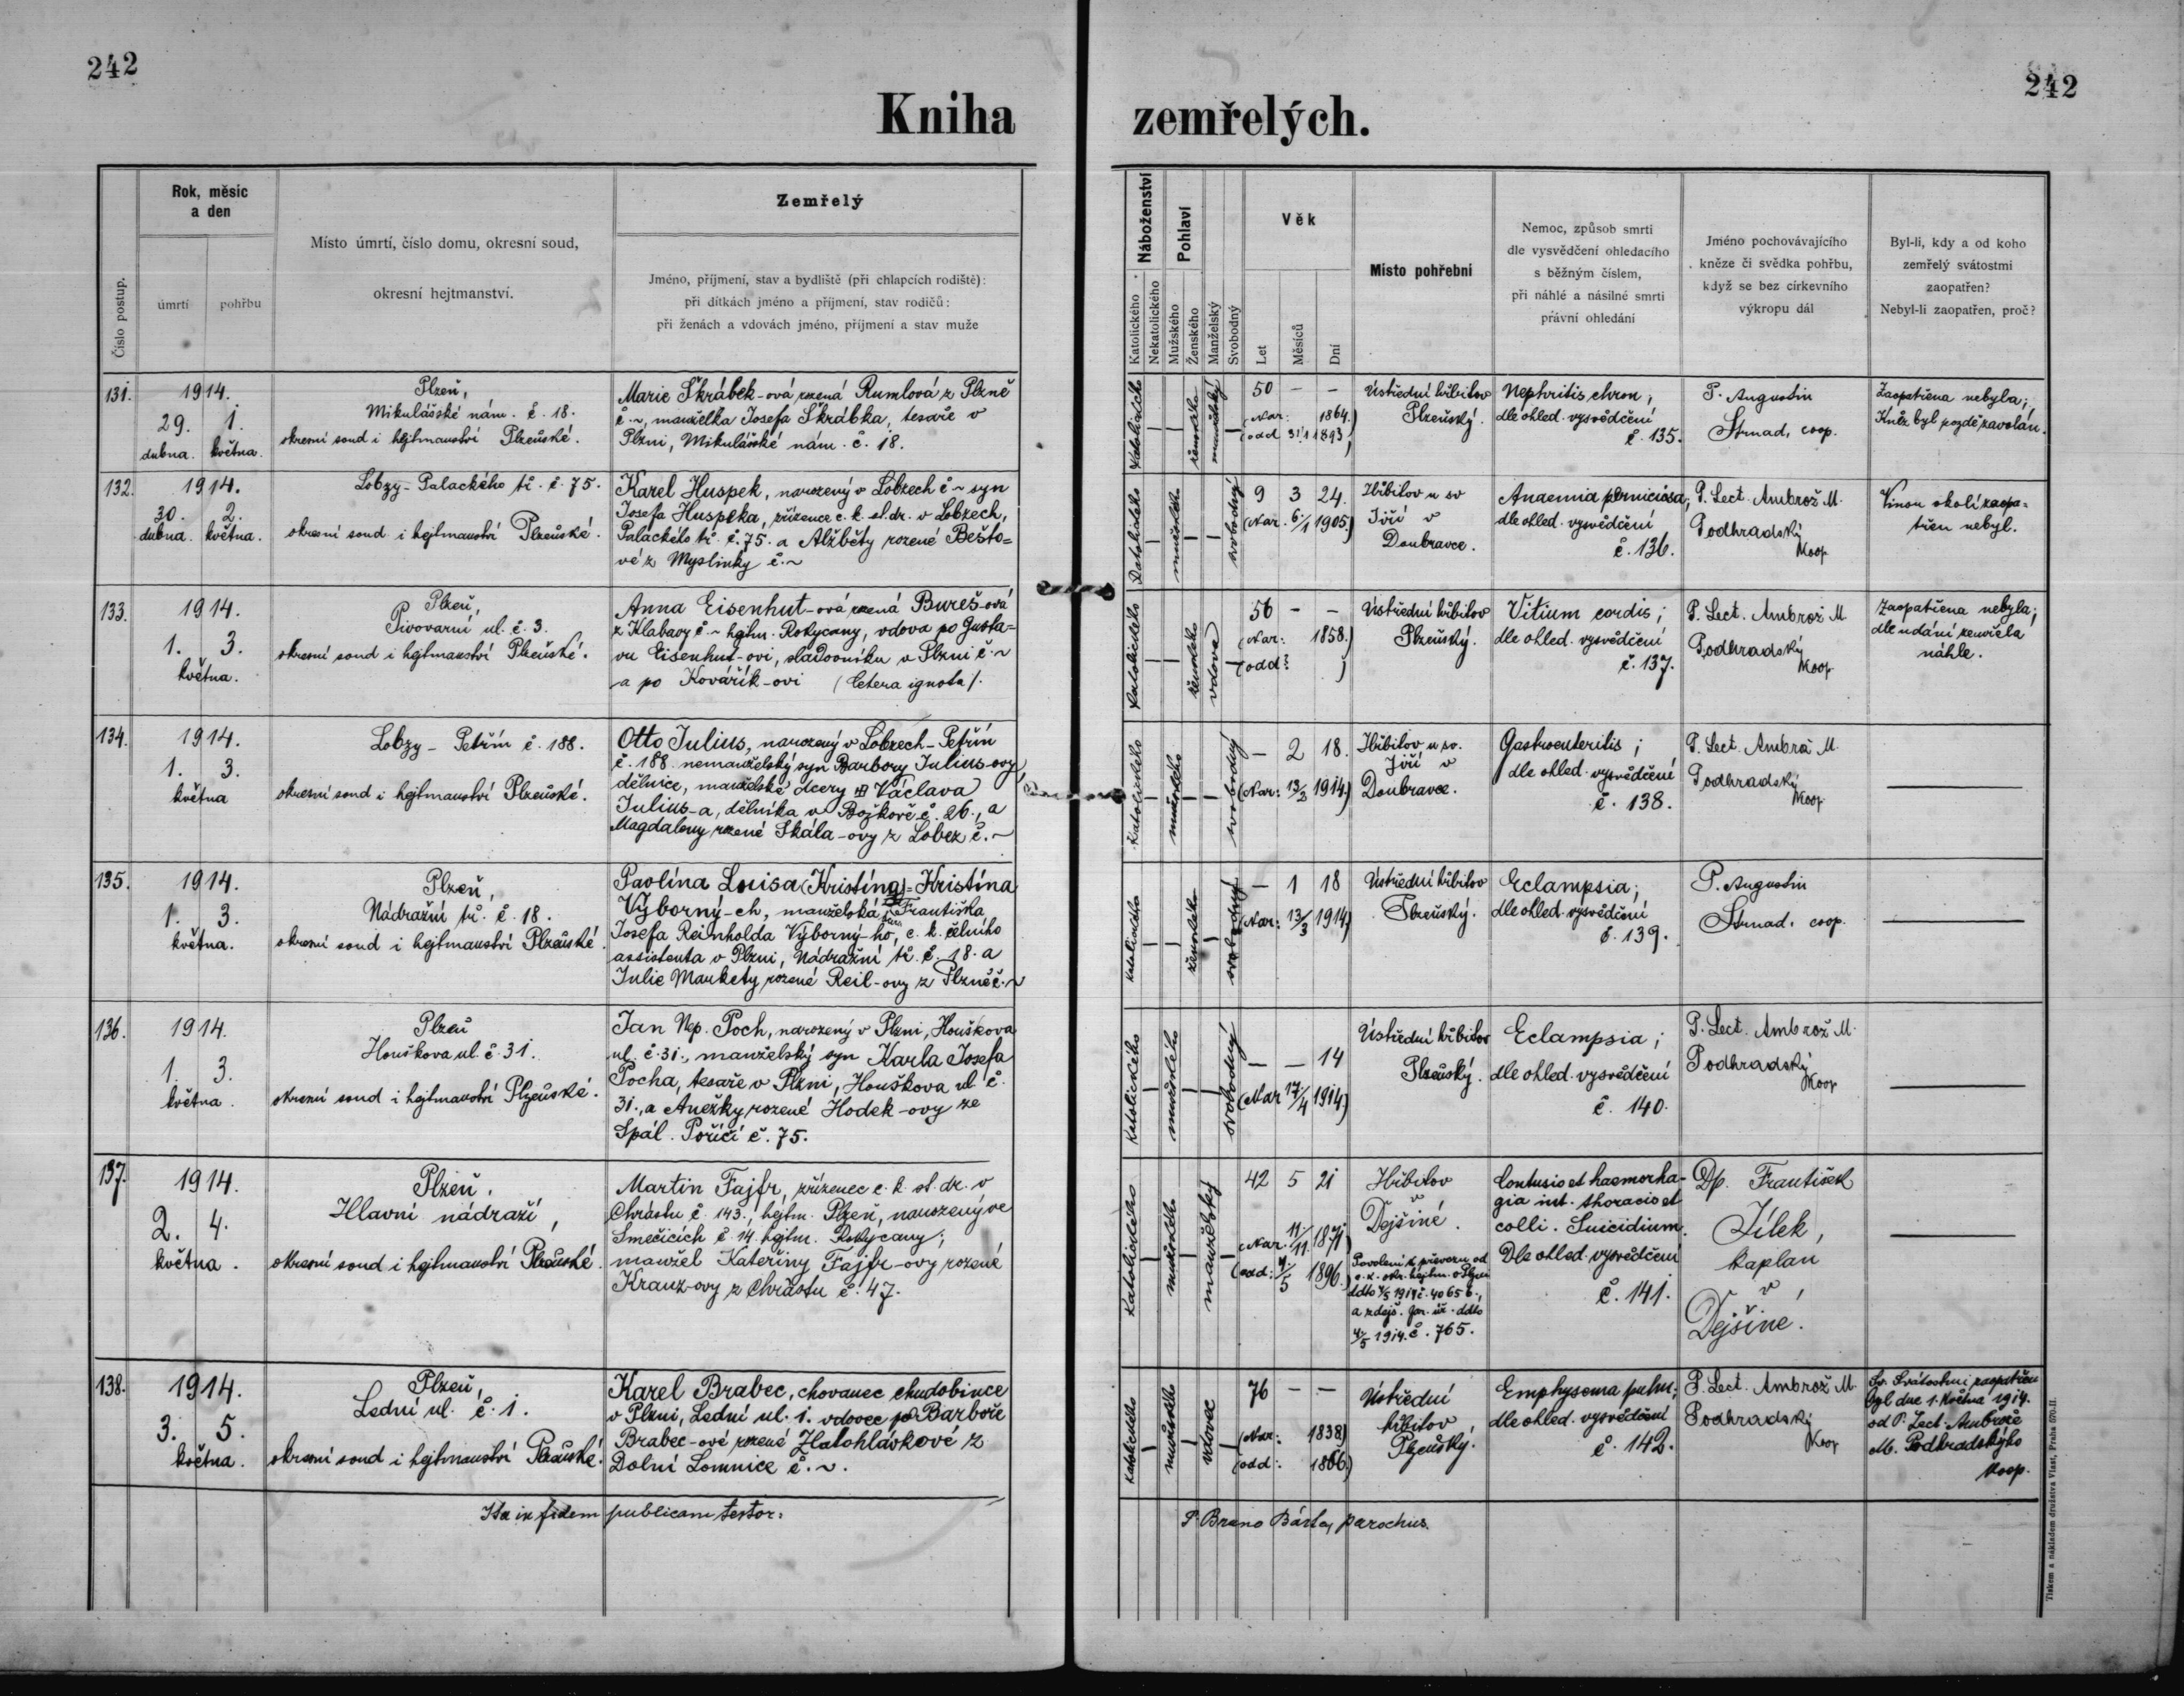 242
242
Kniha zemřelých.
Číslo postup.
Rok, měsíc
a den
úmrtí
pohřbu
Místo úmrtí, číslo domu, okresní soud,
okresní hejtmanství.
Zemřelý
Jméno, příjmení, stav a bydliště (při chlapcích rodiště):
při dítkách jméno a příjmení, stav rodičů:
při ženách a vdovách jméno, příjmení a stav muže
Náboženství
Katolického
Nekatolického
Pohlaví
Mužského
Ženského
Manželský
Svobodný
Věk
Let
Měsíců
Dní
Místo pohřební
Nemoc, způsob smrti
dle vysvědčení ohledacího
s běžným číslem,
při náhlé a násilné smrti
právní ohledání
Jméno pochovávajícího
kněze či svědka pohřbu,
když se bez církevního
výkropu dál
Byl-li, kdy a od koho
zemřelý svátostmi
zaopatřen?
Nebyl-li zaopatřen, proč?
131.
1914.
29. 1.
dubna. května.
Plzeň,
Mikulášské nám. č. 18.
okresní soud i hejtmanství Plzeňské.
Marie Škrábek-ová rozená Rumlová z Plzně
č. ~, manželka Josefa Škrábka, tesaře v
Plzni, Mikulášské nám. č. 18.
katolického
ženského
manželský
50 — —
(Nar: 1864.)
(odd 31/1 1893)
Ústřední hřbitov
Plzeňský.
Nephritis chron;
dle ohled. vysvědčení
č. 135.
P. Augustin
Strnad, coop.
Zaopatřena nebyla;
Kněz byl pozdě zavolán.
132.
1914.
30. 2.
dubna. května.
Lobzy - Palackého tř. č. 75.
okresní soud i hejtmanství Plzeňské.
Karel Huspek, narozený v Lobzech č ~ syn
Josefa Huspeka, zřízence c. k. st. dr. v Lobzech,
Palackého tř. č. 75. a Alžběty rozené Bešto=
vé z Myslinky č. ~
katolického
mužského
svobodný
9 3 24.
(Nar. 6/1 1905.)
Hřbitov u sv
Jiří v
Doubravce.
Anaemia perniciosa;
dle ohled. vysvědčení
č. 136.
P. Lect. Ambrož M.
Podhradský
koop.
Vinou okolí zaopa=
třen nebyl.
133.
1914.
1. 3.
května.
Plzeň,
Pivovarní ul. č. 3.
okresní soud i hejtmanství Plzeňské.
Anna Eisenhut-ová rozená Bureš-ová
z Klabavy č ~ hejtm. Rokycany, vdova po Gusta=
vu Eisenhut-ovi, sladovníku v Plzni č ~
a po Kovářík-ovi (Cetera ignota).
katolického
ženského
vdova
56 — —
(Nar: 1858.)
(odd: )
Ústřední hřbitov
Plzeňský.
Vitium cordis;
dle ohled. vysvědčení
č. 137.
P. Lect. Ambrož M.
Podhradský
koop
Zaopatřena nebyla;
dle udání zemřela
náhle.
134.
1914.
1. 3.
května
Lobzy - Petřín č. 188.
okresní soud i hejtmanství Plzeňské.
Otto Julius, narozený v Lobzech-Petřín
č. 188 nemanželský syn Barbory Julius-ovy,
dělnice, manželské dcery Václava
Julius-a, dělníka v Božkově č. 26., a
Magdaleny rozené Skála-ovy z Lobez č. ~
katolického
mužského
svobodný
— 2 18.
(Nar: 13/2 1914)
Hřbitov u sv.
Jiří v
Doubravce.
Gastroenteritis;
dle ohled. vysvědčení
č. 138.
P. Lect. Ambrož M.
Podhradský
koop.
135.
1914.
1. 3.
května.
Plzeň,
Nádražní tř. č. 18.
okresní soud i hejtmanství Plzeňské.
Pavlína Louisa (Kristina) = Kristína
Výborný-ch, manželská Františka
Josefa Reinholda Výborný-ho, c. k. celního
assistenta v Plzni, Nádražní tř. č. 18. a
Julie Markety rozené Reil-ovy z Plzně č. ~
katolického
ženského
svobodný
— 1 18
(Nar: 13/3 1914)
Ústřední hřbitov
Plzeňský.
Eclampsia;
dle ohled. vysvědčení
č. 139.
P. Augustin
Strnad, coop.
136.
1914.
1. 3.
května.
Plzeň
Houškova ul. č. 31.
okresní soud i hejtmanství Plzeňské.
Jan Nep. Poch, narozený v Plzni, Houškova
ul. č. 31., manželský syn Karla Josefa
Pocha, tesaře v Plzni, Houškova ul. č.
31., a Anežky rozené Hodek-ovy ze
Spál. Poříčí č. 75.
katolického
mužského
svobodný
— — 14
(Nar 17/4 1914)
Ústřední hřbitov
Plzeňský.
Eclampsia;
dle ohled. vysvědčení
č. 140.
P. Lect. Ambrož M.
Podhradský
koop
137.
1914.
2. 4.
května.
Plzeň,
Hlavní nádraží,
okresní soud i hejtmanství Plzeňské.
Martin Fajfr, zřízenec c. k. st. dr. v
Chrástu č. 143., hejtm. Plzeň, narozený ve
Smečicích č. 14. hejtm. Rokycany;
manžel Kateřiny Fajfr-ovy rozené
Kranz-ovy z Chrástu č. 47.
katolického
mužského
manželský
42 5 21
(Nar. 11/11 1871)
(odd: 4/5 1896.)
Hřbitov
v
Dejšiné.
Povolení k převozu od
c. k. okr. hejtm. v Plzni
ddto 4/5 1914 č. 40656.,
a zdejš. far. úř. ddto
4/5 1914. č. 765.
Contusio et haemorrha-
gia int. thoracis et
colli. Suicidium.
Dle ohled. vysvědčení
č. 141.
Dp. František
Jílek,
kaplan
v
Dejšiné.
138.
1914.
3. 5.
května.
Plzeň,
Lední ul. č. 1.
okresní soud i hejtmanství Plzeňské.
Karel Brabec, chovanec chudobince
v Plzni, Lední ul. 1. vdovec po Barboře
Brabec-ové rozené Zlatohlávkové z
Dolní Lomnice č. ~.
katolického
mužského
vdovec
76 — —
(Nar: 1838)
(odd: 1866.)
Ústřední
hřbitov
Plzeňský.
Emphysema pulm;
dle ohled. vysvědčení
č. 142.
P. Lect. Ambrož M.
Podhradský
koop
Sv. Svátostmi zaopatřen
byl dne 1. května 1914.
od P. Lect. Ambrože
M. Podhradského
koop.
Ita in fidem publicam testor:
P. Bruno Bárta, parochus.
Tiskem a nákladem družstva Vlast, Praha 570-II.